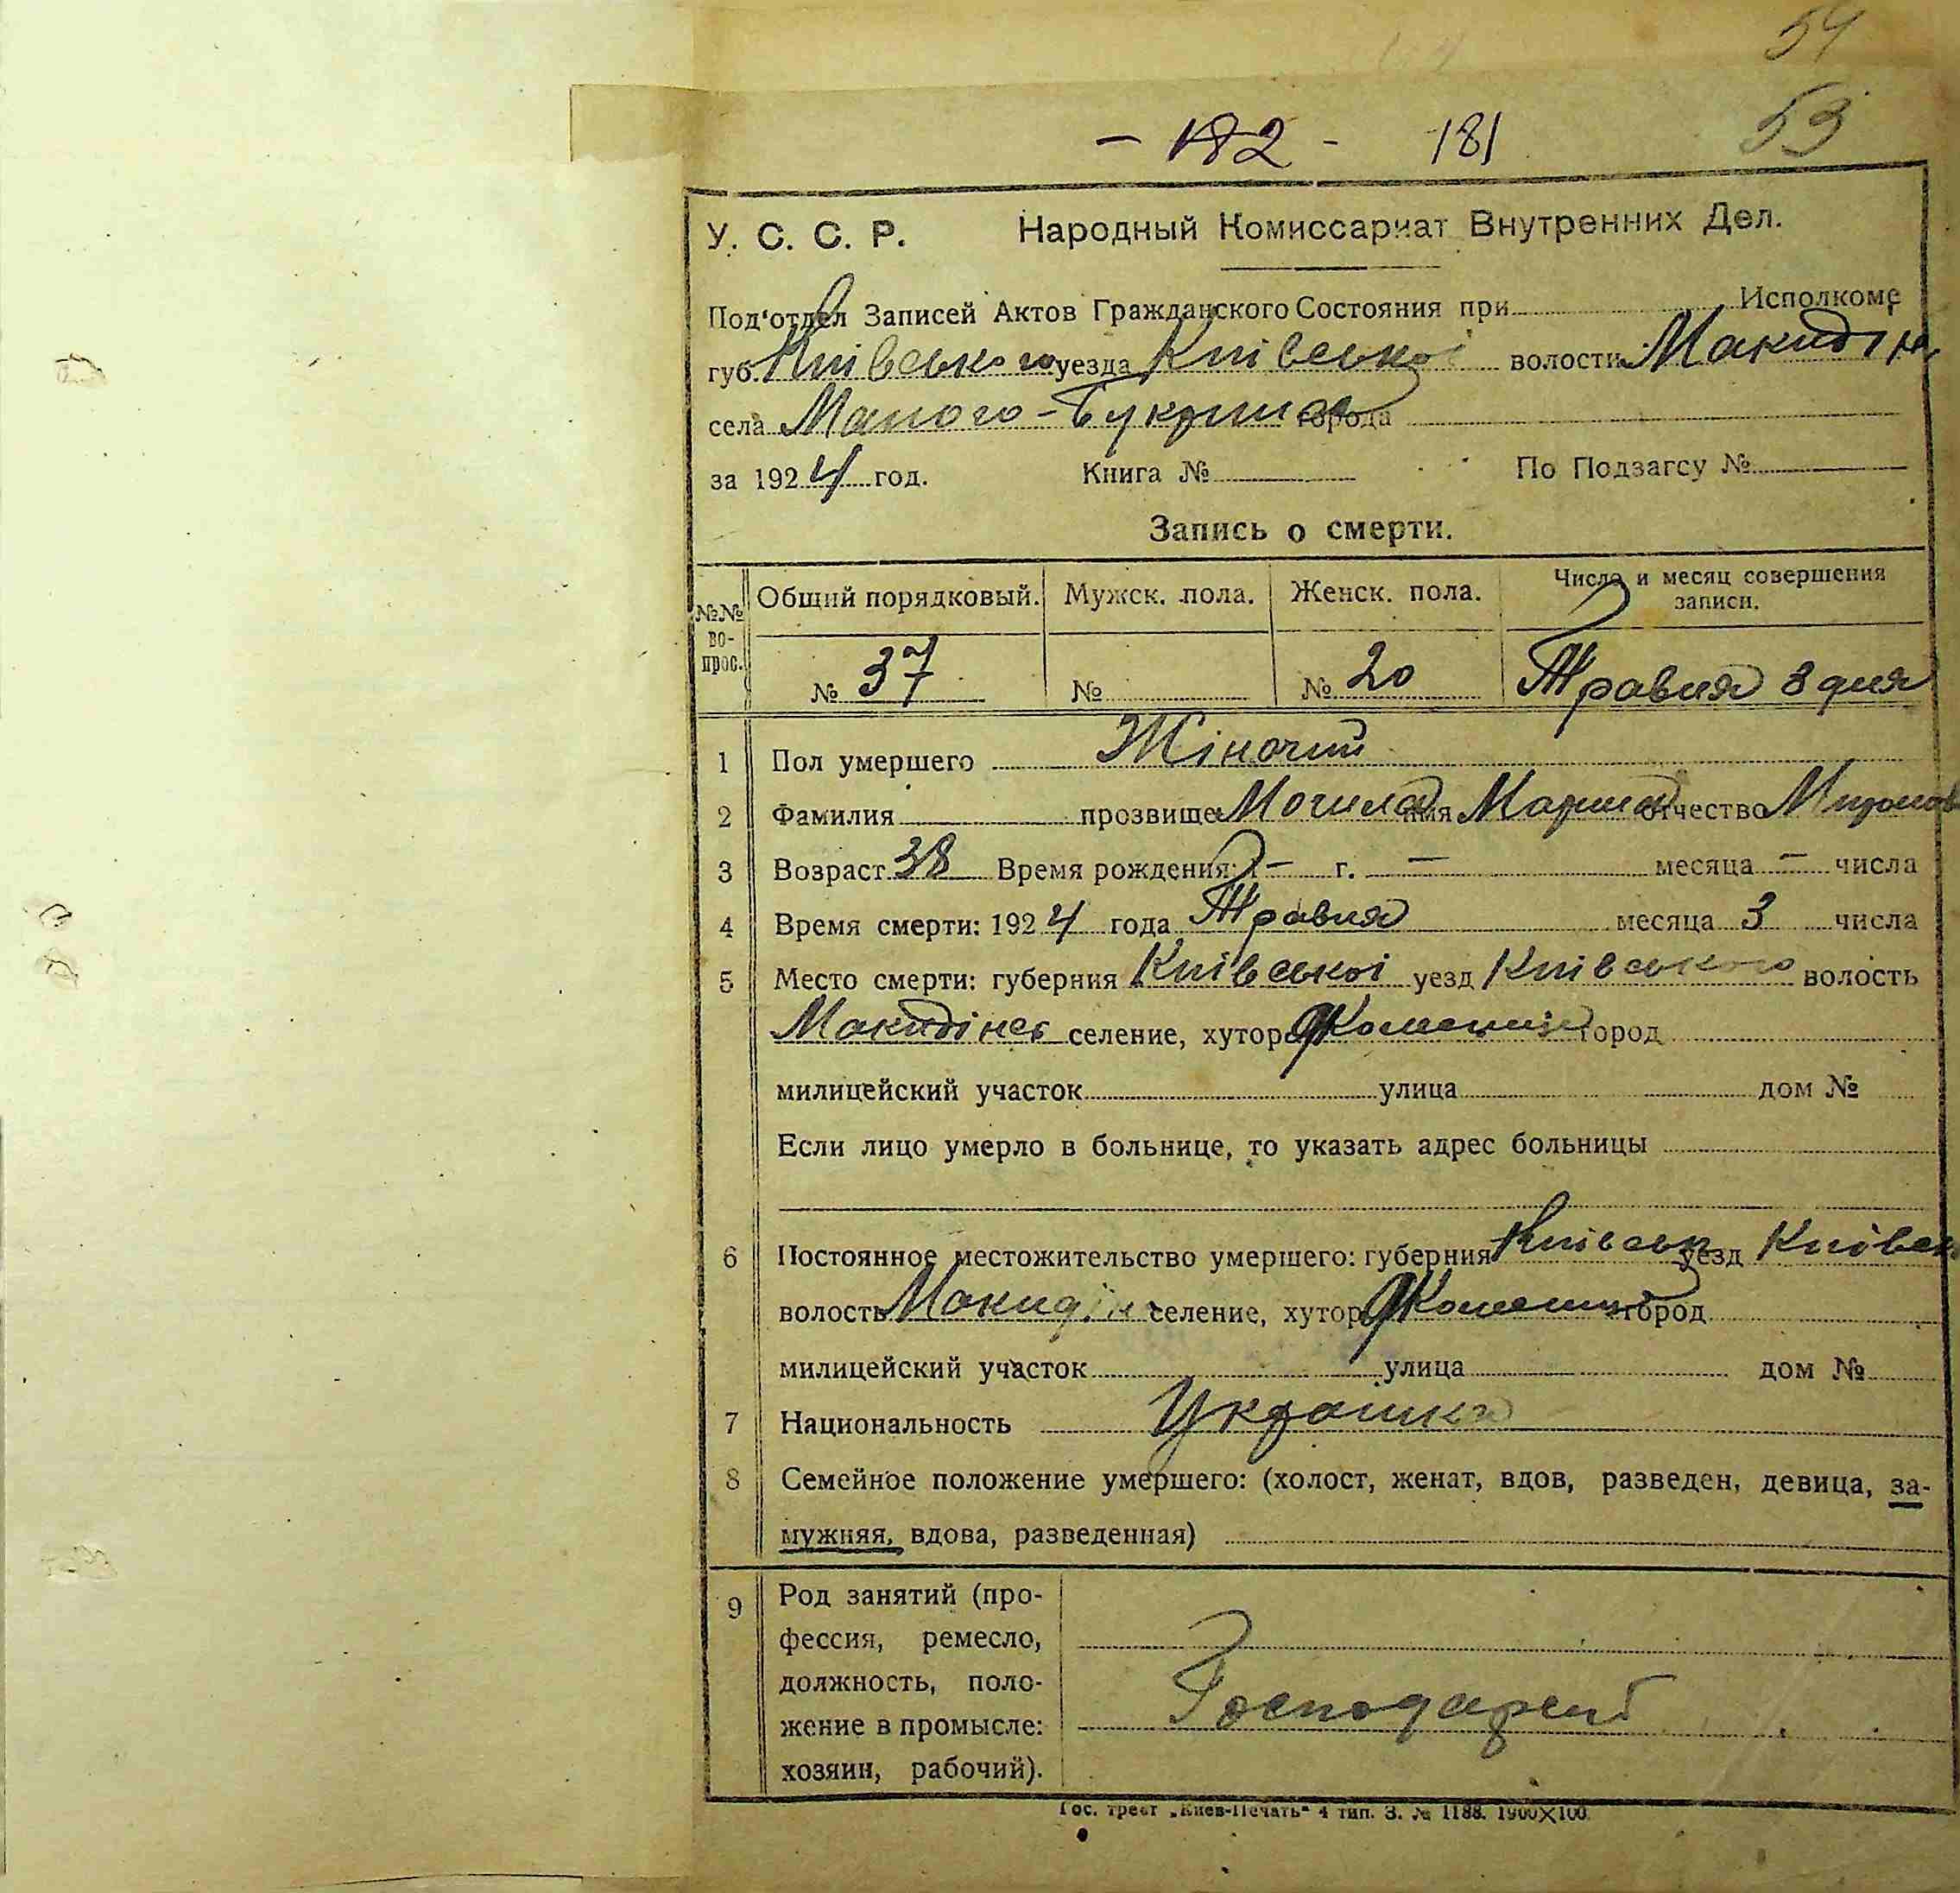 54
53
- 182 - 181
У. С. С. Р. Народный Комиссариат Внутренних Дел.
Под'отдел Записей Актов Гражданского Состояния при Исполкоме
губ. Київського уезда Київської волости Макидін
села Малого-Букрина города
за 1924 год. Книга № По Подзагсу №
Запись о смерти.
№№ во-прос. Общий порядковый. Мужск. пола. Женск. пола. Число и месяц совершения записи.
№ 37 № № 20 Травня 3 дня
1 Пол умершего Жіночий
2 Фамилия прозвище Могила имя Мария отчество Миронов
3 Возраст 38 Время рождения: 1 — г. — месяца — числа
4 Время смерти: 1924 года Травня месяца 3 числа
5 Место смерти: губерния Київської уезд Київського волость
Макидінс селение, хутор город
милицейский участок улица дом №
Если лицо умерло в больнице, то указать адрес больницы
6 Постоянное местожительство умершего: губерния Київськ уезд Київськ
волость Макидін селение, хутор город
милицейский участок улица дом №
7 Национальность Украинка
8 Семейное положение умершего: (холост, женат, вдов, разведен, девица, за-
мужняя, вдова, разведенная)
9 Род занятий (про-
фессия, ремесло,
должность, поло-
жение в промысле:
хозяин, рабочий).
Гос. трест „Киев-Печать" 4 тип. З. № 1188. 1900×100.